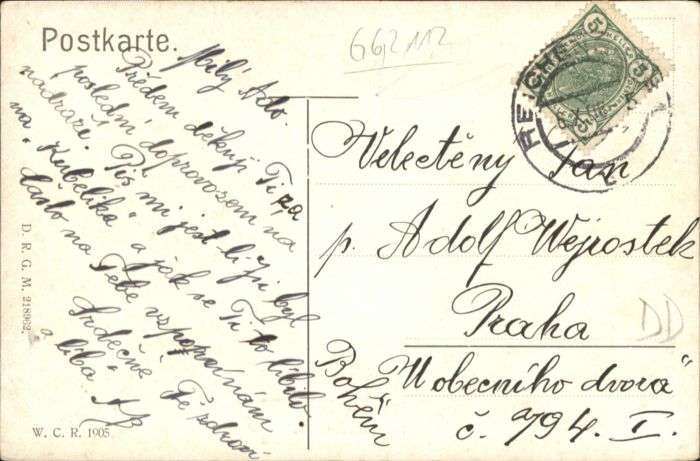 Postkarte.
662112
Milý Ado.
Předem děkuji Ti za
poslední doprovozem na
nádraží. Piš mi jest li jsi byl
na "Kubelíka" a jak se Ti to líbilo.
Často na Tebe vzpomínám
Srdečně Tě zdraví
a líbá
D. R. G. M. 218962.
W. C. R. 1905.
5 5
REICHE
Velectěný Pan
p. Adolf Wejrostek
Praha
"U obecního dvora"
č. 794. I.
Böhm
DD